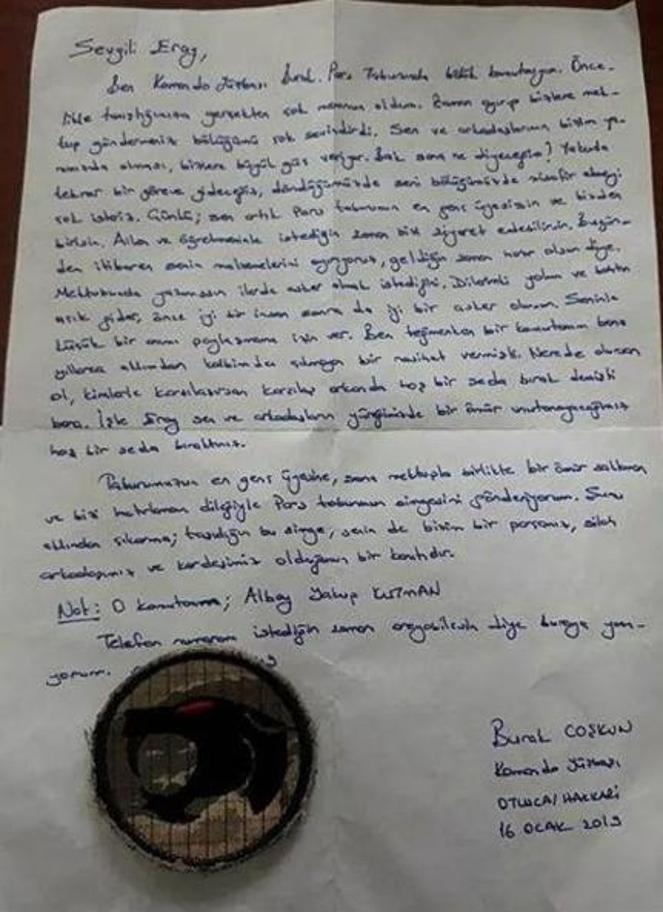 Sevgili Eray,
Ben Komando Yüzbaşı Burak. Pars Taburunda bölük komutanıyım. Önce-
likle tanıştığımıza gerçekten çok memnun oldum. Zaman ayırıp bizlere mek-
tup göndermeniz bölüğümü çok sevindirdi. Sen ve arkadaşlarının bizim ya-
nımızda olması, bizlere büyük güç veriyor. Bak sana ne diyeceğim? Yakında
tekrar bir göreve gideceğiz, döndüğümüzde seni bölüğümüzde misafir etmeyi
çok isteriz. Çünkü; sen artık Pars taburunun en genç üyesisin ve bizden
birisin. Ailen ve öğretmeninle istediğin zaman bizi ziyaret edebilirsin. Bugün-
den itibaren senin malzemelerini ayırıyoruz, geldiğin zaman hazır olsun diye.
Mektubunda yazmışsın ilerde asker olmak istediğini. Dilerim yolun ve bahtın
açık gider, önce iyi bir insan sonra da iyi bir asker olursun. Seninle
küçük bir anımı paylaşmama izin ver. Ben teğmenken bir komutanım bana
yıllarca aklımdan kalbimden çıkmayan bir nasihat vermişti. Nerede olursan
ol, kimlerle karşılaşırsan karşılaş arkanda hoş bir seda bırak demişti
bana. İşte Eray sen ve arkadaşların yüreğimizde bir ömür unutamayacağımız
hoş bir seda bıraktınız.
Taburumuzun en genç üyesine, sana mektupla birlikte bir ömür saklaman
ve bizi hatırlaman dileğiyle Pars taburunun simgesini gönderiyorum. Şunu
aklından çıkarma; taşıdığın bu simge, senin de bizim bir parçamız, silah
arkadaşımız ve kardeşimiz olduğunun bir kanıtıdır.
Not: O komutanım; Albay Yakup KUZMAN
Telefon numaram istediğin zaman arayabilesin diye buraya yazı-
yorum.
Burak COŞKUN
Komando Yüzbaşı
OTLUCA/HAKKARİ
16 OCAK 2019